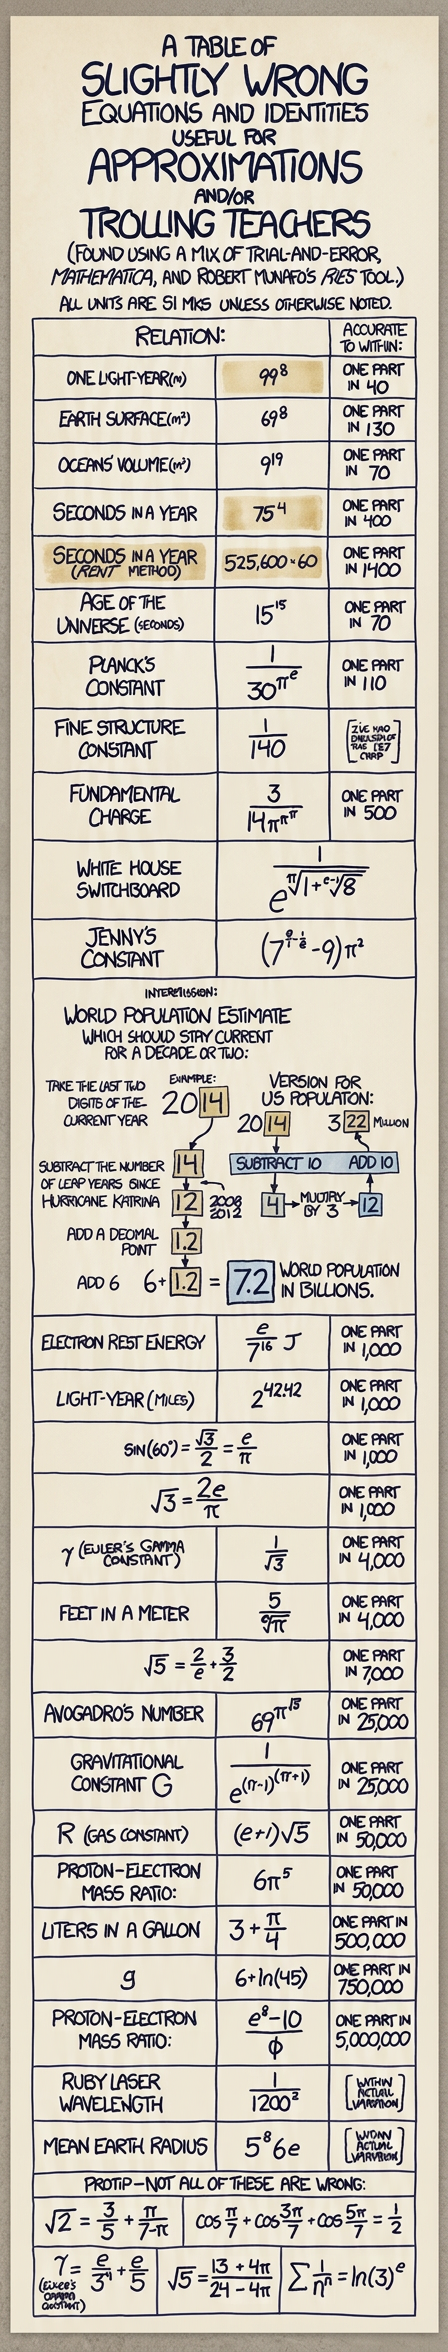 A TABLE OF
SLIGHTLY WRONG
EQUATIONS AND IDENTITIES
USEFUL FOR
APPROXIMATIONS
AND/OR
TROLLING TEACHERS
(FOUND USING A MIX OF TRIAL-AND-ERROR,
MATHEMATICA, AND ROBERT MUNAFO'S RIES TOOL.)
ALL UNITS ARE SI MKS UNLESS OTHERWISE NOTED.
RELATION: ACCURATE TO WITHIN:
ONE LIGHT-YEAR(m) 99⁸ ONE PART IN 40
EARTH SURFACE(m²) 69⁸ ONE PART IN 130
OCEANS' VOLUME(m³) 9¹⁹ ONE PART IN 70
SECONDS IN A YEAR 75⁴ ONE PART IN 400
SECONDS IN A YEAR (RENT METHOD) 525,600·60 ONE PART IN 1400
AGE OF THE UNIVERSE (SECONDS) 15¹⁵ ONE PART IN 70
PLANCK'S CONSTANT 1/30^(π^e) ONE PART IN 110
FINE STRUCTURE CONSTANT 1/140
FUNDAMENTAL CHARGE 3/(14π^(π^π)) ONE PART IN 500
WHITE HOUSE SWITCHBOARD 1/(e^(π√(1+(e-1)√8)))
JENNY'S CONSTANT (7^(e/1-1/e)-9)π²
INTERMISSION:
WORLD POPULATION ESTIMATE
WHICH SHOULD STAY CURRENT
FOR A DECADE OR TWO:
TAKE THE LAST TWO
DIGITS OF THE
CURRENT YEAR
EXAMPLE:
2014
SUBTRACT THE NUMBER
OF LEAP YEARS SINCE
HURRICANE KATRINA
14
12
2008
2012
ADD A DECIMAL
POINT
1.2
ADD 6 6+1.2 = 7.2 WORLD POPULATION
IN BILLIONS.
VERSION FOR
US POPULATION:
2014 322 MILLION
SUBTRACT 10 ADD 10
4 MULTIPLY BY 3 12
ELECTRON REST ENERGY e/7¹⁶ J ONE PART IN 1,000
LIGHT-YEAR (MILES) 2^42.42 ONE PART IN 1,000
SIN(60°) = √3/2 = e/π ONE PART IN 1,000
√3 = 2e/π ONE PART IN 1,000
γ (EULER'S GAMMA CONSTANT) 1/√3 ONE PART IN 4,000
FEET IN A METER 5/(e√π) ONE PART IN 4,000
√5 = 2/e + 3/2 ONE PART IN 7,000
AVOGADRO'S NUMBER 69^(π^√5) ONE PART IN 25,000
GRAVITATIONAL CONSTANT G 1/(e^((π-1)^(π+1))) ONE PART IN 25,000
R (GAS CONSTANT) (e+1)√5 ONE PART IN 50,000
PROTON-ELECTRON MASS RATIO: 6π⁵ ONE PART IN 50,000
LITERS IN A GALLON 3 + π/4 ONE PART IN 500,000
g 6+ln(45) ONE PART IN 750,000
PROTON-ELECTRON MASS RATIO: (e⁸-10)/ϕ ONE PART IN 5,000,000
RUBY LASER WAVELENGTH 1/1200² [WITHIN ACTUAL VARIATION]
MEAN EARTH RADIUS 5⁸6e ACTUAL
PROTIP—NOT ALL OF THESE ARE WRONG:
√2 = 3/5 + π/(7-π) cos π/7 + cos 3π/7 + cos 5π/7 = 1/2
γ = e/3⁴ + e/5 √5 = (13 + 4π)/(24 - 4π) Σ 1/nⁿ = ln(3)^e